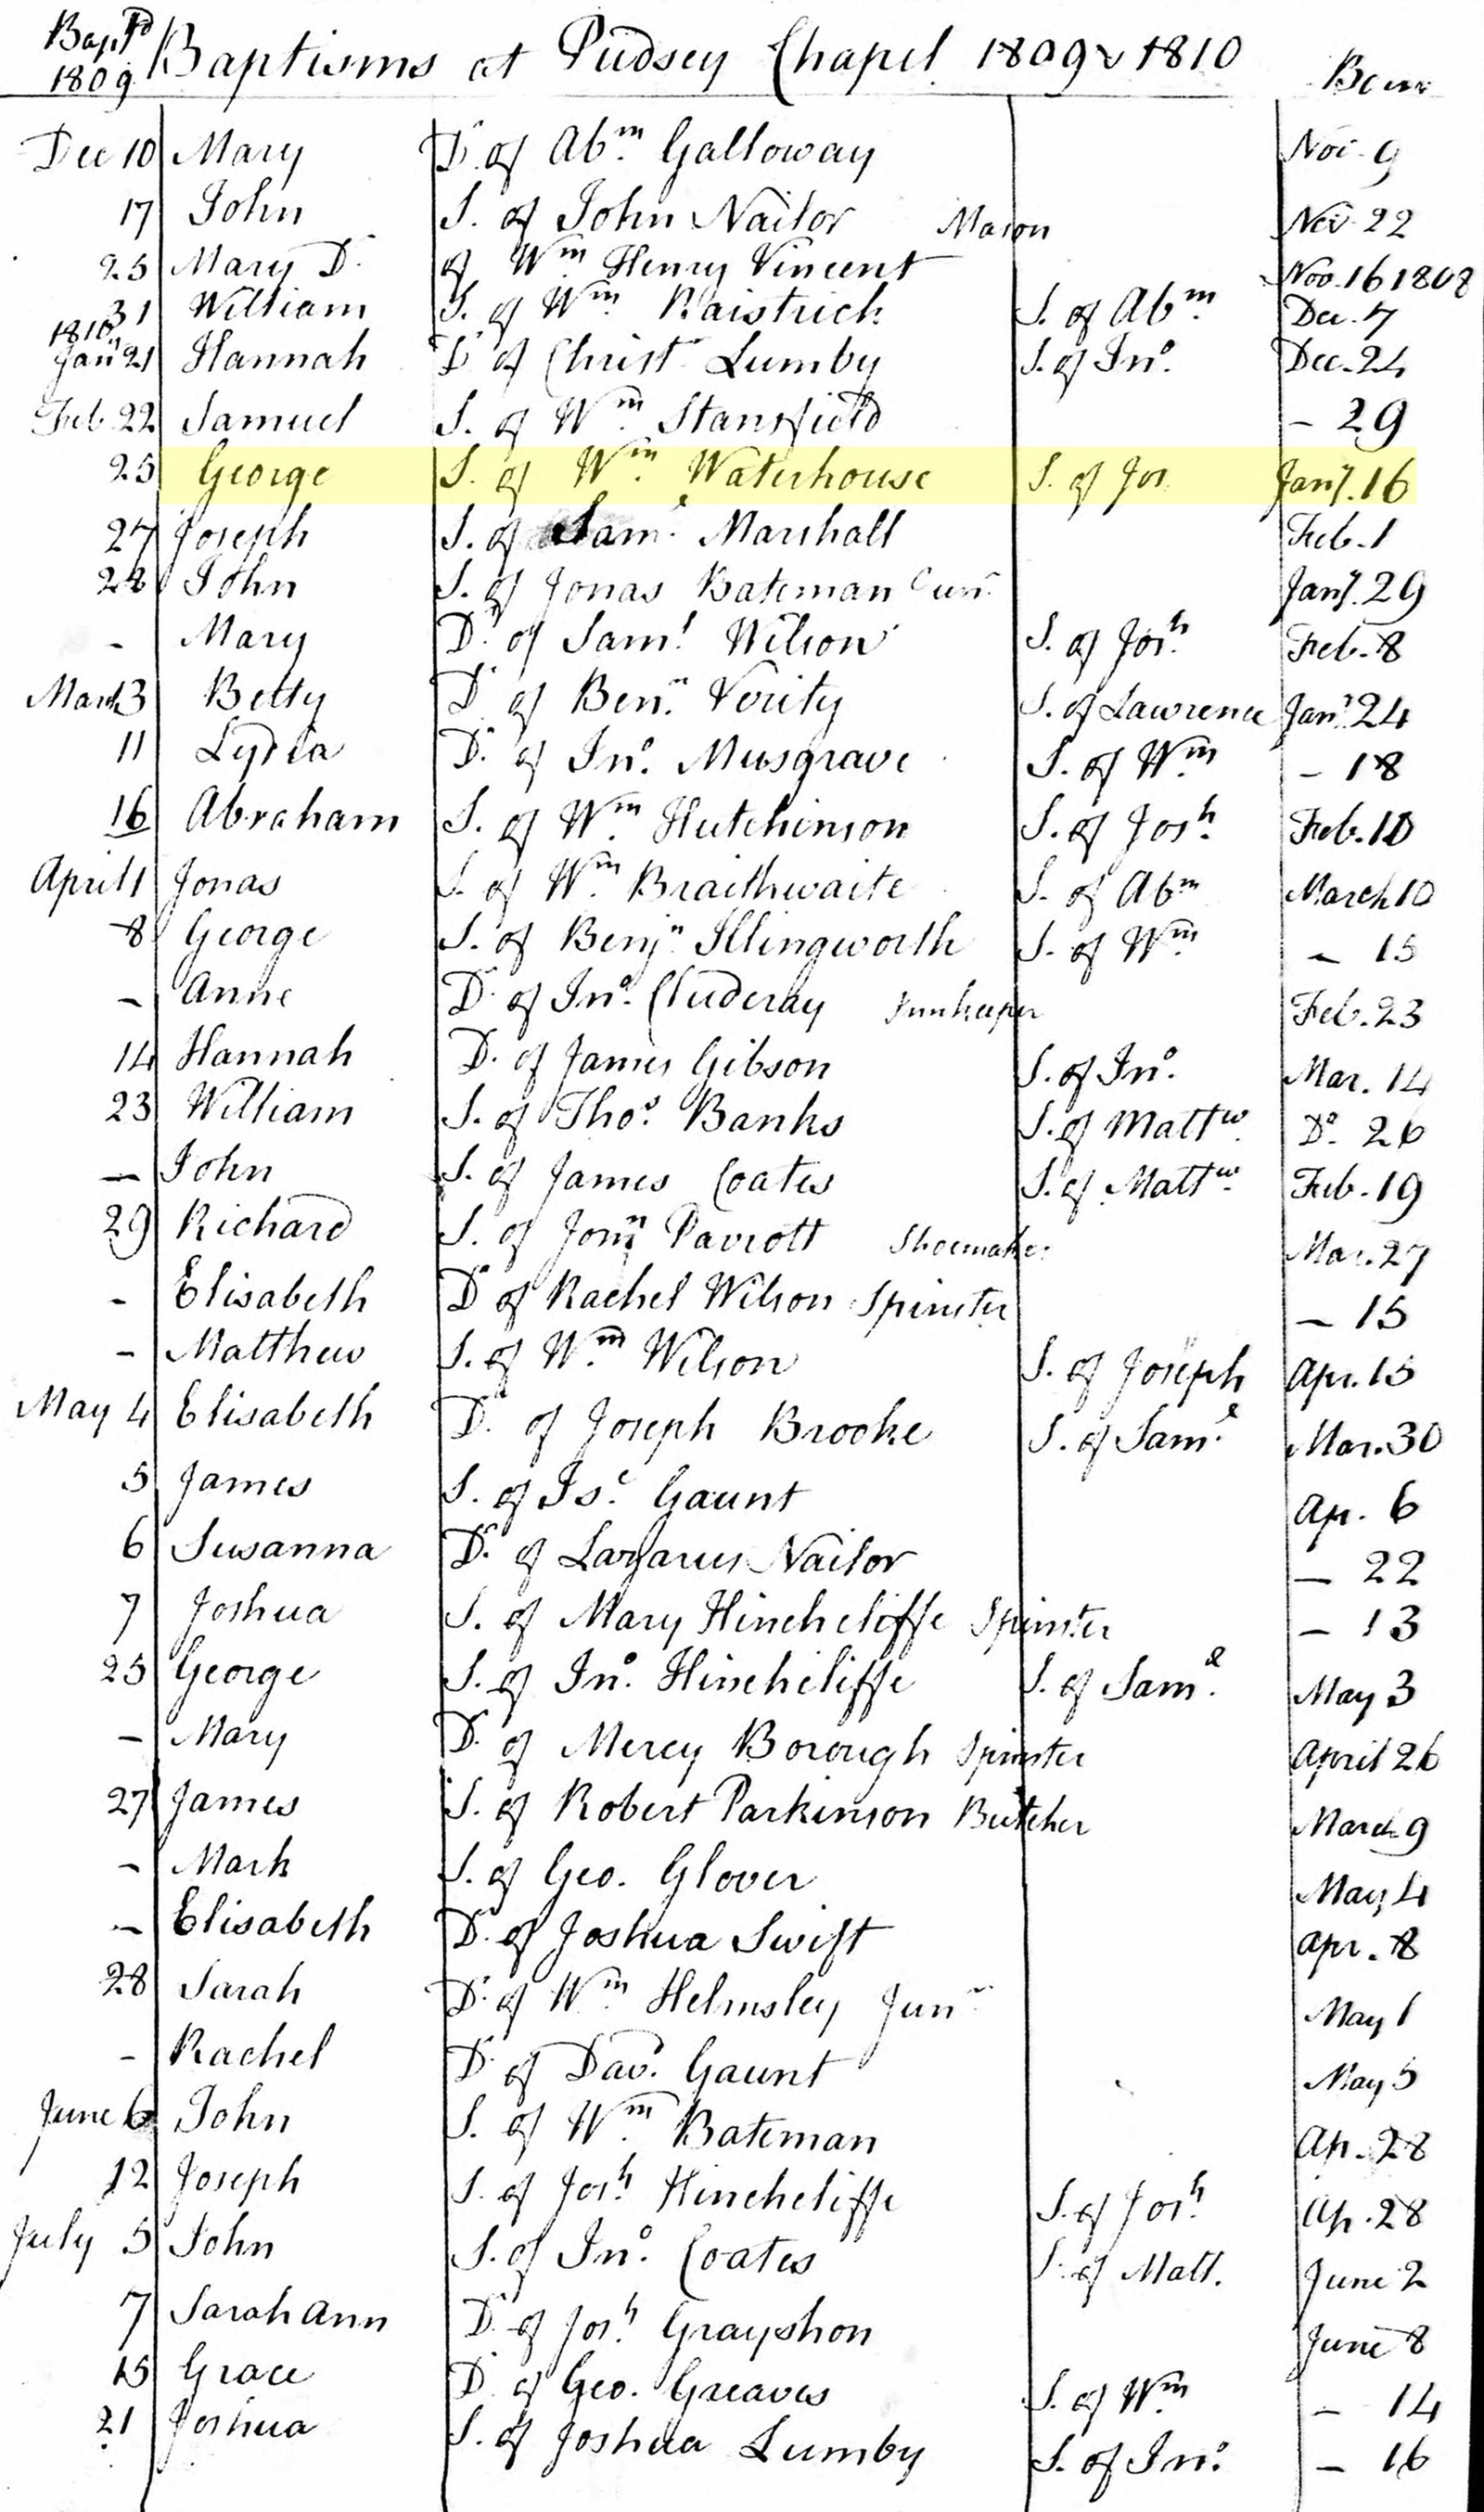 Bapt'd 1809 Baptisms at Pudsey Chapel 1809 & 1810 Born
Dec 10 Mary D. of Abm. Galloway Nov. 9
17 John S. of John Nailor Mason Nov 22
25 Mary D. of Wm. Henry Vincent Nov. 16 1808
31 William S. of Wm. Raistrick S. of Abm. Dec. 7
1810 Jany 21 Hannah D. of Christ. Lumby S. of Jno. Dec. 24
Feb. 22 Samuel S. of Wm. Stansfield – 29
25 George S. of Wm. Waterhouse S. of Jos. Jany. 16
27 Joseph S. of Saml. Marshall Feb. 1
28 John S. of Jonas Bateman Jany. 29
- Mary D. of Saml. Wilson S. of Josh. Feb. 8
March 3 Betty D. of Benn. Verity S. of Lawrence Jany. 24
11 Lydia D. of Jno. Musgrave S. of Wm. – 18
16 Abraham S. of Wm. Hutchinson S. of Josh. Feb. 10
April 1 Jonas S. of Wm. Braithwaite S. of Abm. March 10
8 George S. of Benjn. Illingworth S. of Wm. – 15
– Anne D. of Jno. Cluderay Innkeeper Feb. 23
14 Hannah D. of James Gibson S. of Jno. Mar. 14
23 William S. of Thos. Banks S. of Mattw. Do. 26
— John S. of James Coates S. of Mattw. Feb. 19
29 Richard S. of Jonn. Parrott Shoemaker Mar. 27
- Elisabeth D. of Rachel Wilson Spinster – 15
- Matthew S. of Wm. Wilson S. of Joseph Apr. 15
May 4 Elisabeth D. of Joseph Brooke S. of Saml. Mar. 30
5 James S. of Isc. Gaunt Ap. 6
6 Susanna D. of Lazarus Nailor – 22
7 Joshua S. of Mary Hinchcliffe Spinster – 13
25 George S. of Jno. Hinchcliffe S. of Saml. May 3
– Mary D. of Mercy Borough Spinster April 26
27 James S. of Robert Parkinson Butcher March 9
– Mark S. of Geo. Glover May 4
– Elisabeth D. of Joshua Swift Apr. 8
28 Sarah D. of Wm. Helmsley Junr. May 1
- Rachel D. of Davd. Gaunt May 5
June 6 John S. of Wm. Bateman Ap. 28
12 Joseph S. of Josh. Hinchcliffe S. of Josh. Ap. 28
July 5 John S. of Jno. Coates S. of Matt. June 2
7 Sarah Ann D. of Josh. Grayshon June 8
15 Grace D. of Geo. Greaves S. of Wm. – 14
21 Joshua S. of Joshua Lumby S. of Jno. – 16